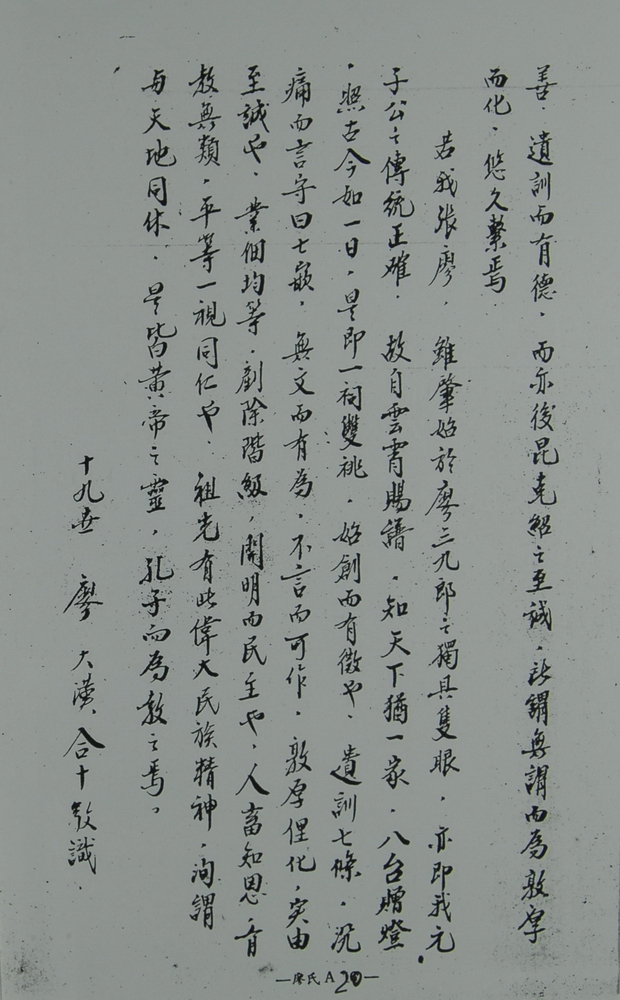 善．遺訓而有德．而亦後昆克紹之至誠．訴謂無謂而為敦厚
而化．悠久繫焉
若我張廖．雖肇始於廖三九郎之獨具隻眼．亦即我元
子公之傳統正確．故自雲霄賜譜．知天下猶一家．八台贈燈
．照古今如一日．是即一祠雙祧．始創而有徵也．遺訓七條．沉
痛而言字曰七嵌．無文而有為．不言而可作．敦厚俚化．实由
至誠也．業佃均等．剷除階級．開明而民主也．人富知恩．有
教無類．平等一視同仁也．祖先有此偉大民族精神．洵謂
与天地同休．是皆黃帝之靈．孔子而為教之焉。
十九世 廖大漢 合十敬識．
—廖氏 A 20—